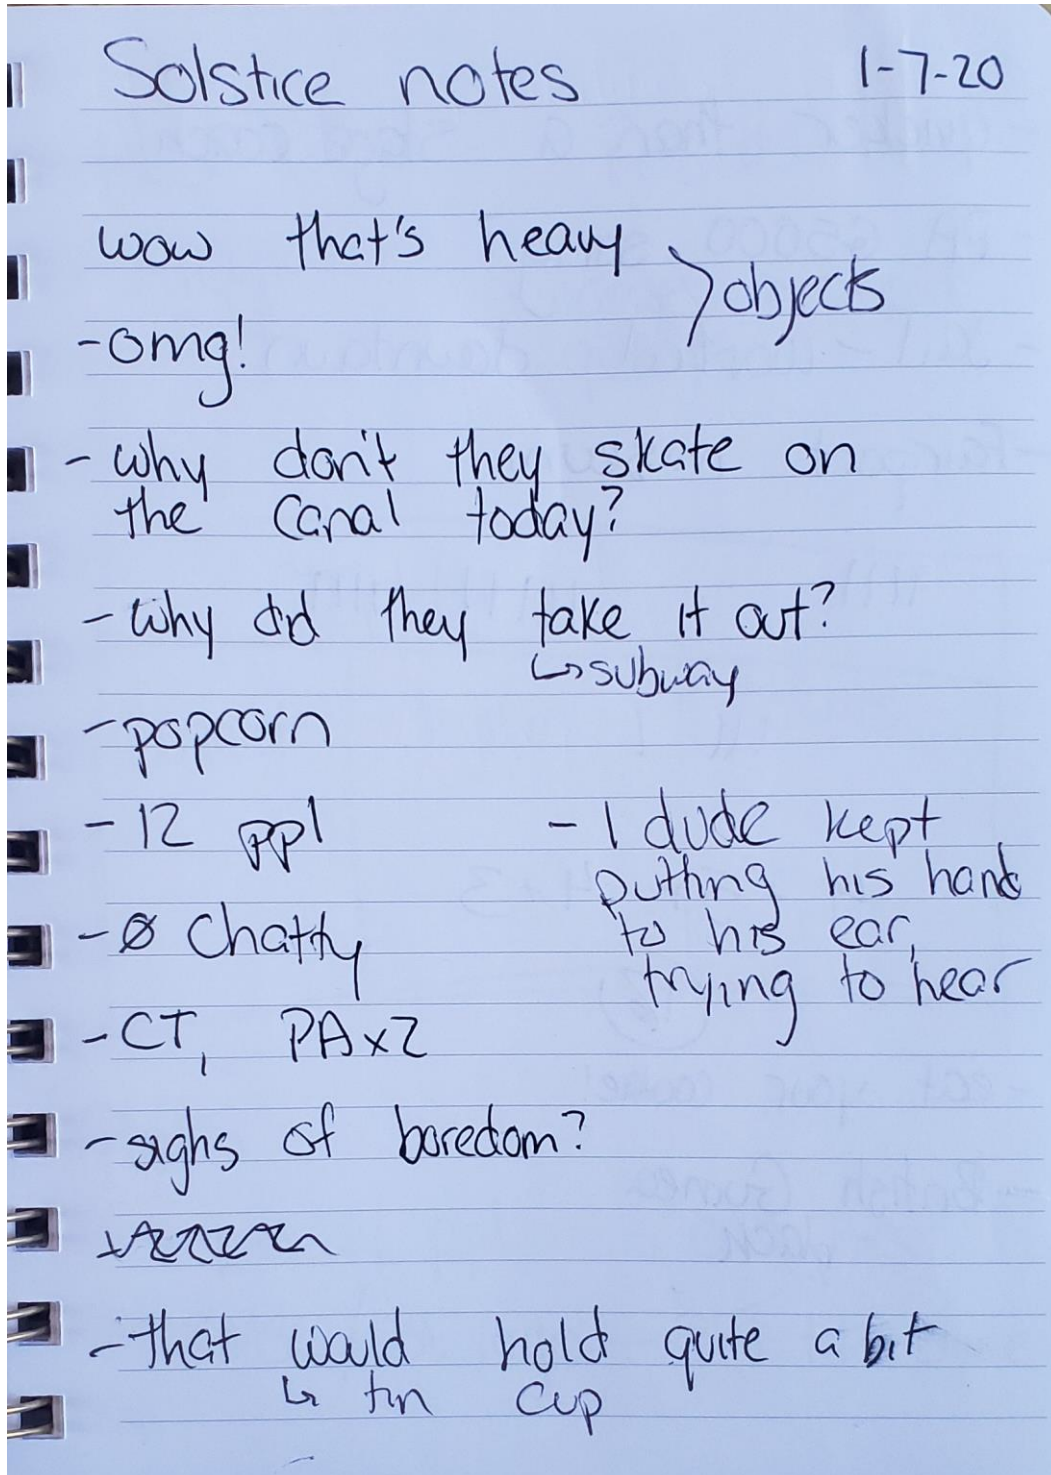 Solstice notes 1-7-20
wow that's heavy
objects
-omg!
-why don't they skate on
the Canal today?
-why did they take it out?
↳subway
-popcorn
-12 ppl
-Ø Chatty
-CT, PAx2
-1 dude kept
putting his hand
to his ear,
trying to hear
-sighs of boredom?
-that would hold quite a bit
↳ tin cup